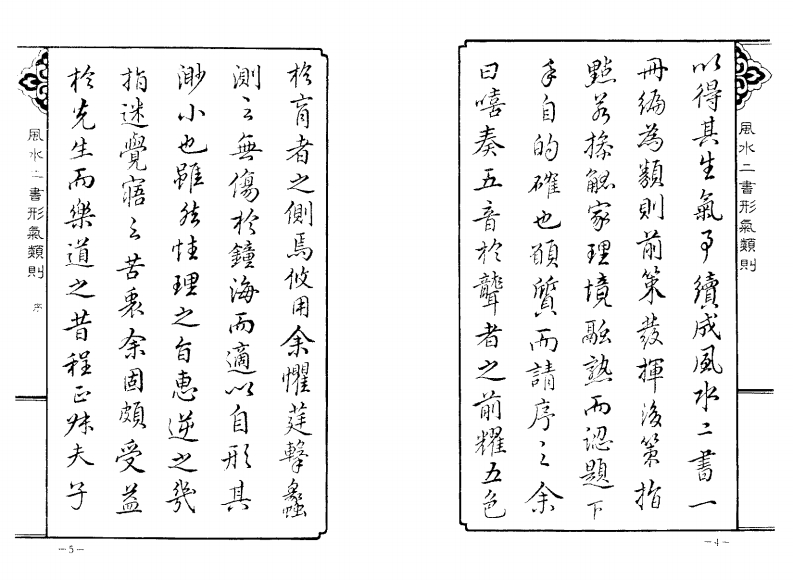 風水二書形氣類則
以得其生氣耳續成風水二書一
冊編為類則前策發揮後策指
點若操觚家理境融熟而認題下
手自的確也頎質而請序之余
曰嘻奏五音於聾者之前耀五色
—4—
於盲者之側焉攸用余懼莛擊蠡
測之無傷於鐘海而適以自形其
渺小也雖然性理之旨惠逆之幾
指迷覺寤之苦衷余固頗受益
於先生而樂道之昔程正叔夫子
風水二書形氣類則
序
—5—